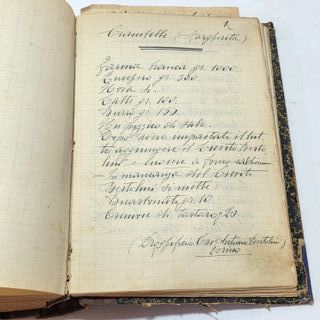 1
Ciambelle (Margherita)
Farina bianca gr. 1000.
Zucchero gr. 350.
Uova 4.
Latte gr. 100.
Burro gr. 150.
Un pizzico di sale.
Dopo avere impastato il tut
to aggiungere il Lievito Berto
lini e cuocere a forno
In mancanza del Lievito
Bertolini si mette:
Bicarbonato gr. 10
Cremore di tartaro gr. 20
(Drogheria Cav. Antonio Bertolini)
Torino